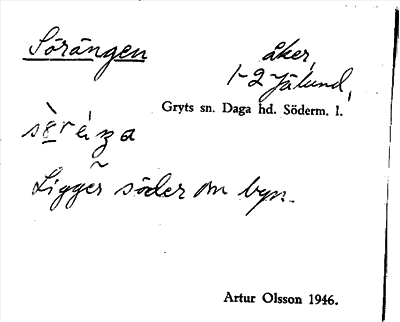 Sörängen
åker,
1-2 Jälund,
Gryts sn. Daga hd. Söderm. l.
Ligger söder om byn.
Artur Olsson 1946.